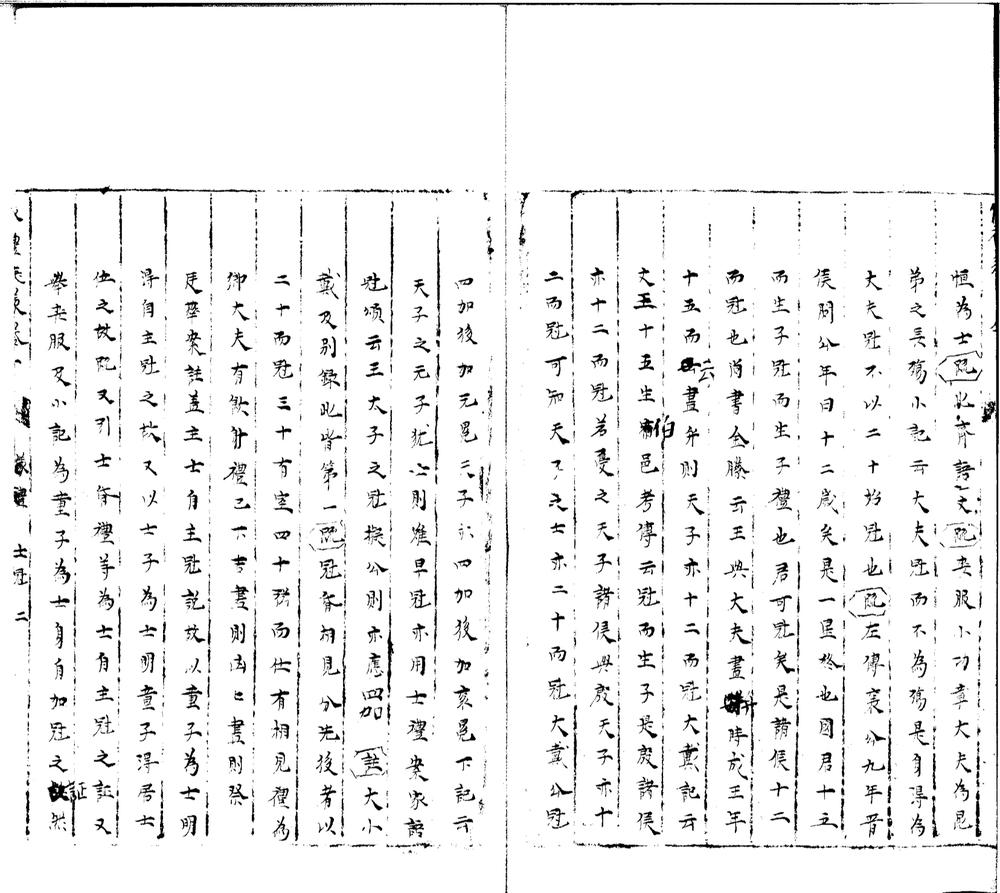 恒為士疏此齊語文疏喪服小功章大夫為昆
弟之長殤小記云大夫冠而不為殤是身得為
大夫冠不以二十始冠也疏左傳襄公九年晉
侯問公年曰十二歲矣是一星終也國君十五
而生子冠而生子禮也君可冠矣是諸侯十二
而冠也尚書金縢云王與大夫盡弁時成王年
十五而云盡弁則天子亦十二而冠大戴記云
文王十五生伯邑考傳云冠而生子是殷諸侯
亦十二而冠若夏之天子諸侯與殷天子亦十
二而冠可知天子之士亦二十而冠大戴公冠
四加後加元冕天子亦四加後加袞冕下記云
天子之元子猶士則雖早冠亦用士禮案家語
冠頌云王大子之冠擬公則亦應四加註大小
戴及別錄此皆第一疏冠昏相見分先後者以
二十而冠三十有室四十強而仕有相見禮為
鄉大夫有飲射禮已下吉盡則凶凶盡則祭
是齊案註蓋主士自主冠說故以童子為士明
得自主冠之故又以士子為士明童子得居士
位之故疏又引士昏禮等為士自主冠之証又
舉喪服及小記為童子為士身自加冠之証然
士冠 二